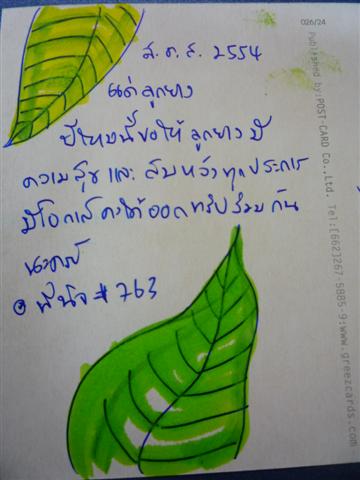 026/24
ส.ค.ส. 2554
แด่ ลูกยาง
ปีใหม่นี้ขอให้ ลูกยาง มี
ความสุข และ สมหวังทุกประการ
มีโอกาส คงได้ออกทริปร่วมกัน
นะครับ
#763
Published by:POST-CARD Co.,Ltd. Tel:(662)267-5885-9:www.greezcards.com